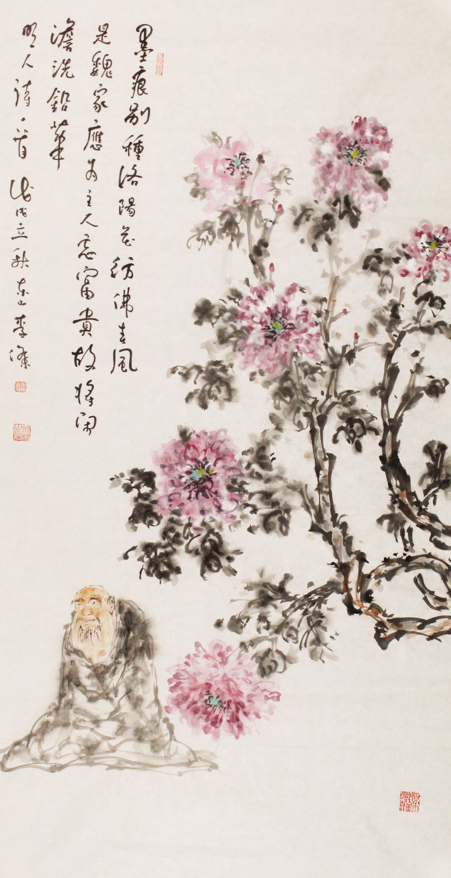 墨痕别種洛陽花彷彿春風
是魏家應為主人忘富貴故将闲
澹洗鉛華
明人詩一首 戊戌立秋 李